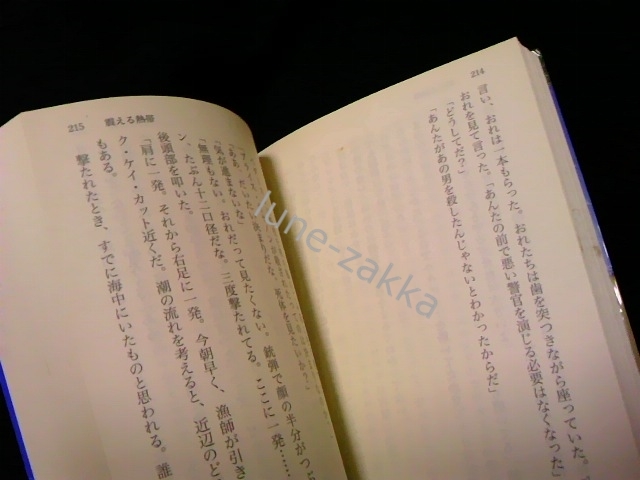 214
言い、おれは一本もらった。おれたちは歯を突つきながら座っていた。
おれを見て言った。「あんたの前で悪い警官を演じる必要はなくなった」
「どうしてだ?」
「あんたがあの男を殺したんじゃないとわかったからだ」
215
震える熱帯
「ああ、だいたい決まりだな。死体を見たいか?」
「気が進まないな」
「無理もない。おれだって見たくない。銃弾で顔の半分がつ
ン、たぶん十二口径だな。三度撃たれてる。ここに一発……
後頭部を叩いた。
「肩に一発。それから右足に一発。今朝早く、漁師が引き
ク・ケイ・カット近くだ。潮の流れを考えると、近辺のど
もある。
撃たれたとき、すでに海中にいたものと思われる。誰
lune-zakka